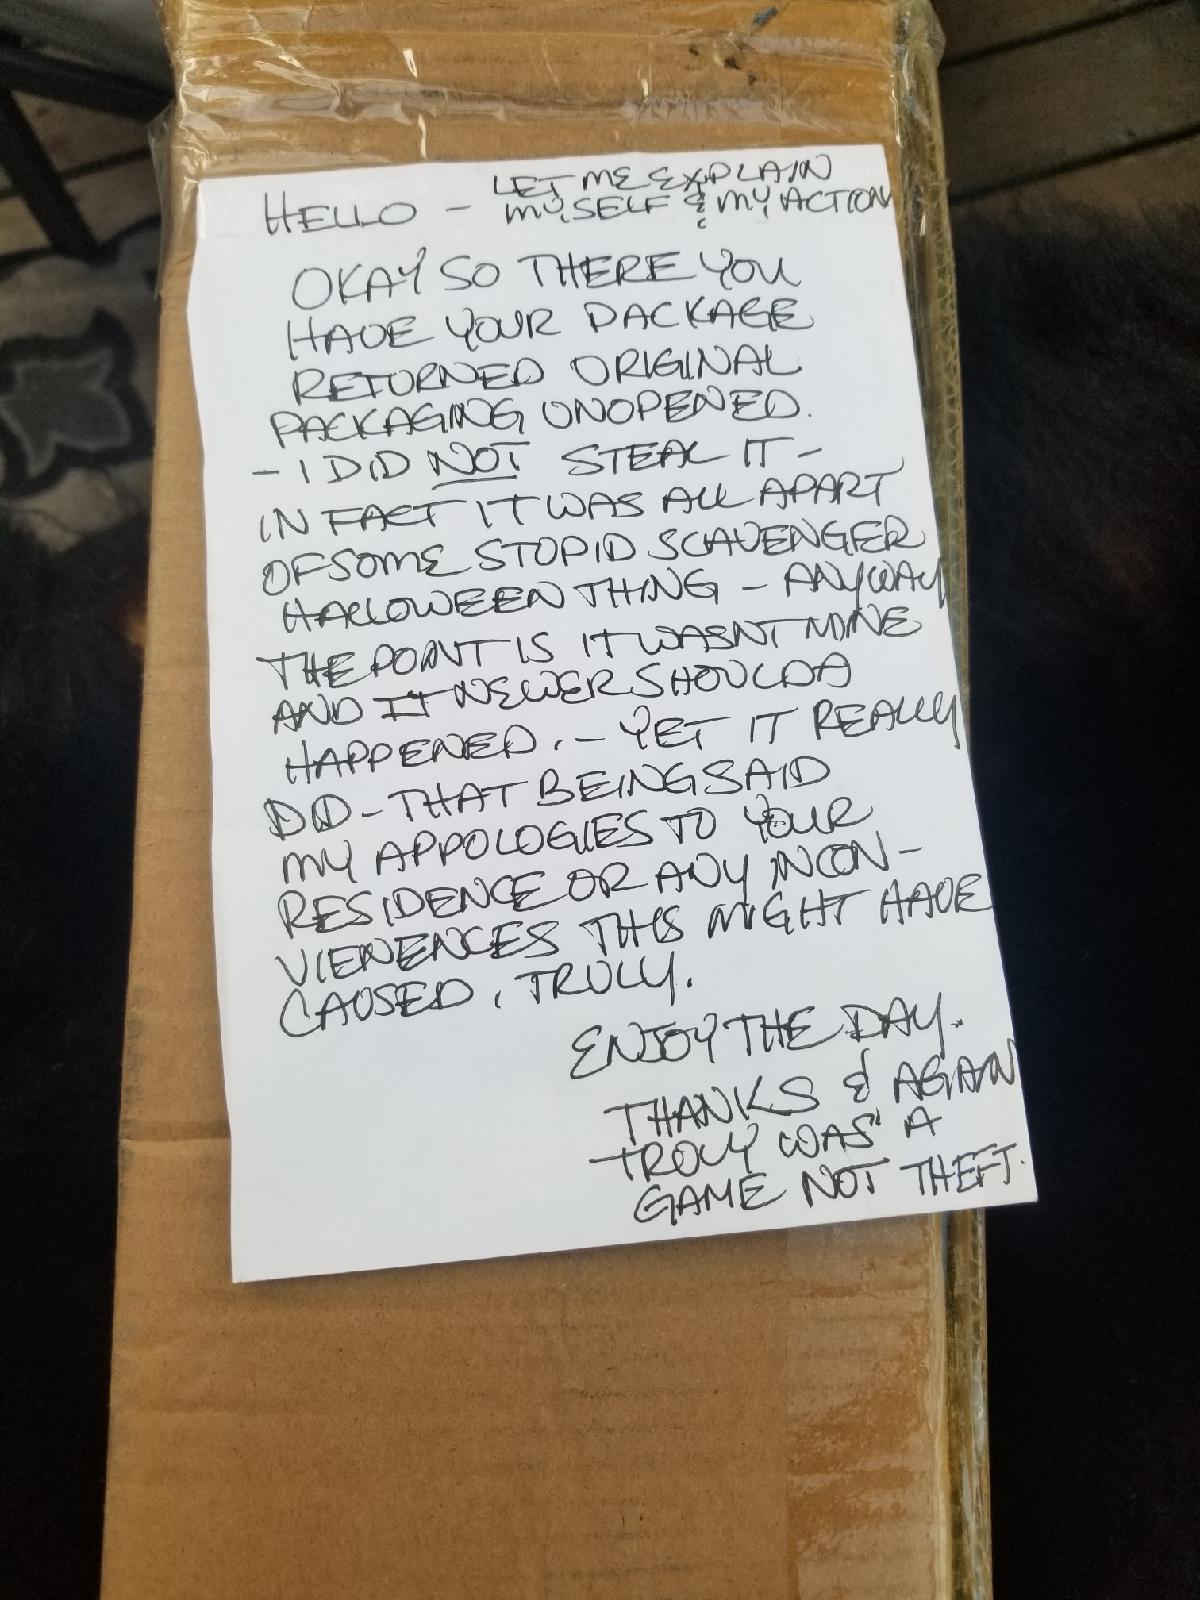 HELLO - LET ME EXPLAIN
MYSELF & MY ACTION
OKAY SO THERE YOU
HAVE YOUR PACKAGE
RETURNED ORIGINAL
PACKAGING UNOPENED.
- I DID NOT STEAL IT -
IN FACT IT WAS ALL APART
OF SOME STUPID SCAVENGER
HALLOWEEN THING - ANYWAY
THE POINT IS IT WASNT MINE
AND IT NEVER SHOULDA
HAPPENED. - YET IT REALLY
DID - THAT BEING SAID
MY APPOLOGIES TO YOUR
RESIDENCE OR ANY INCON-
VIENENCES THIS MIGHT HAVE
CAUSED, TRULY.
ENJOY THE DAY.
THANKS & AGAIN
TRULY WAS A
GAME NOT THEFT.